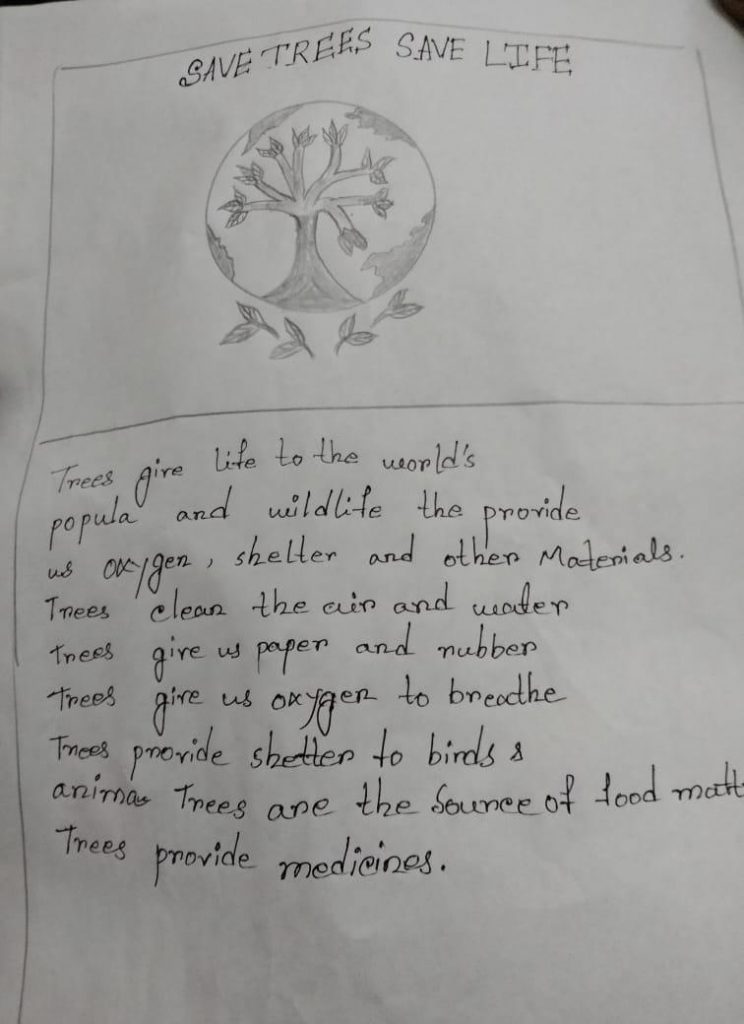 SAVE TREES SAVE LIFE
Trees give life to the world's
popula and wildlife the provide
us oxygen, shelter and other Materials.
Trees clean the air and water
trees give us paper and rubber
trees give us oxygen to breathe
Trees provide shetter to birds &
animas Trees are the Source of food matt
Trees provide medicines.